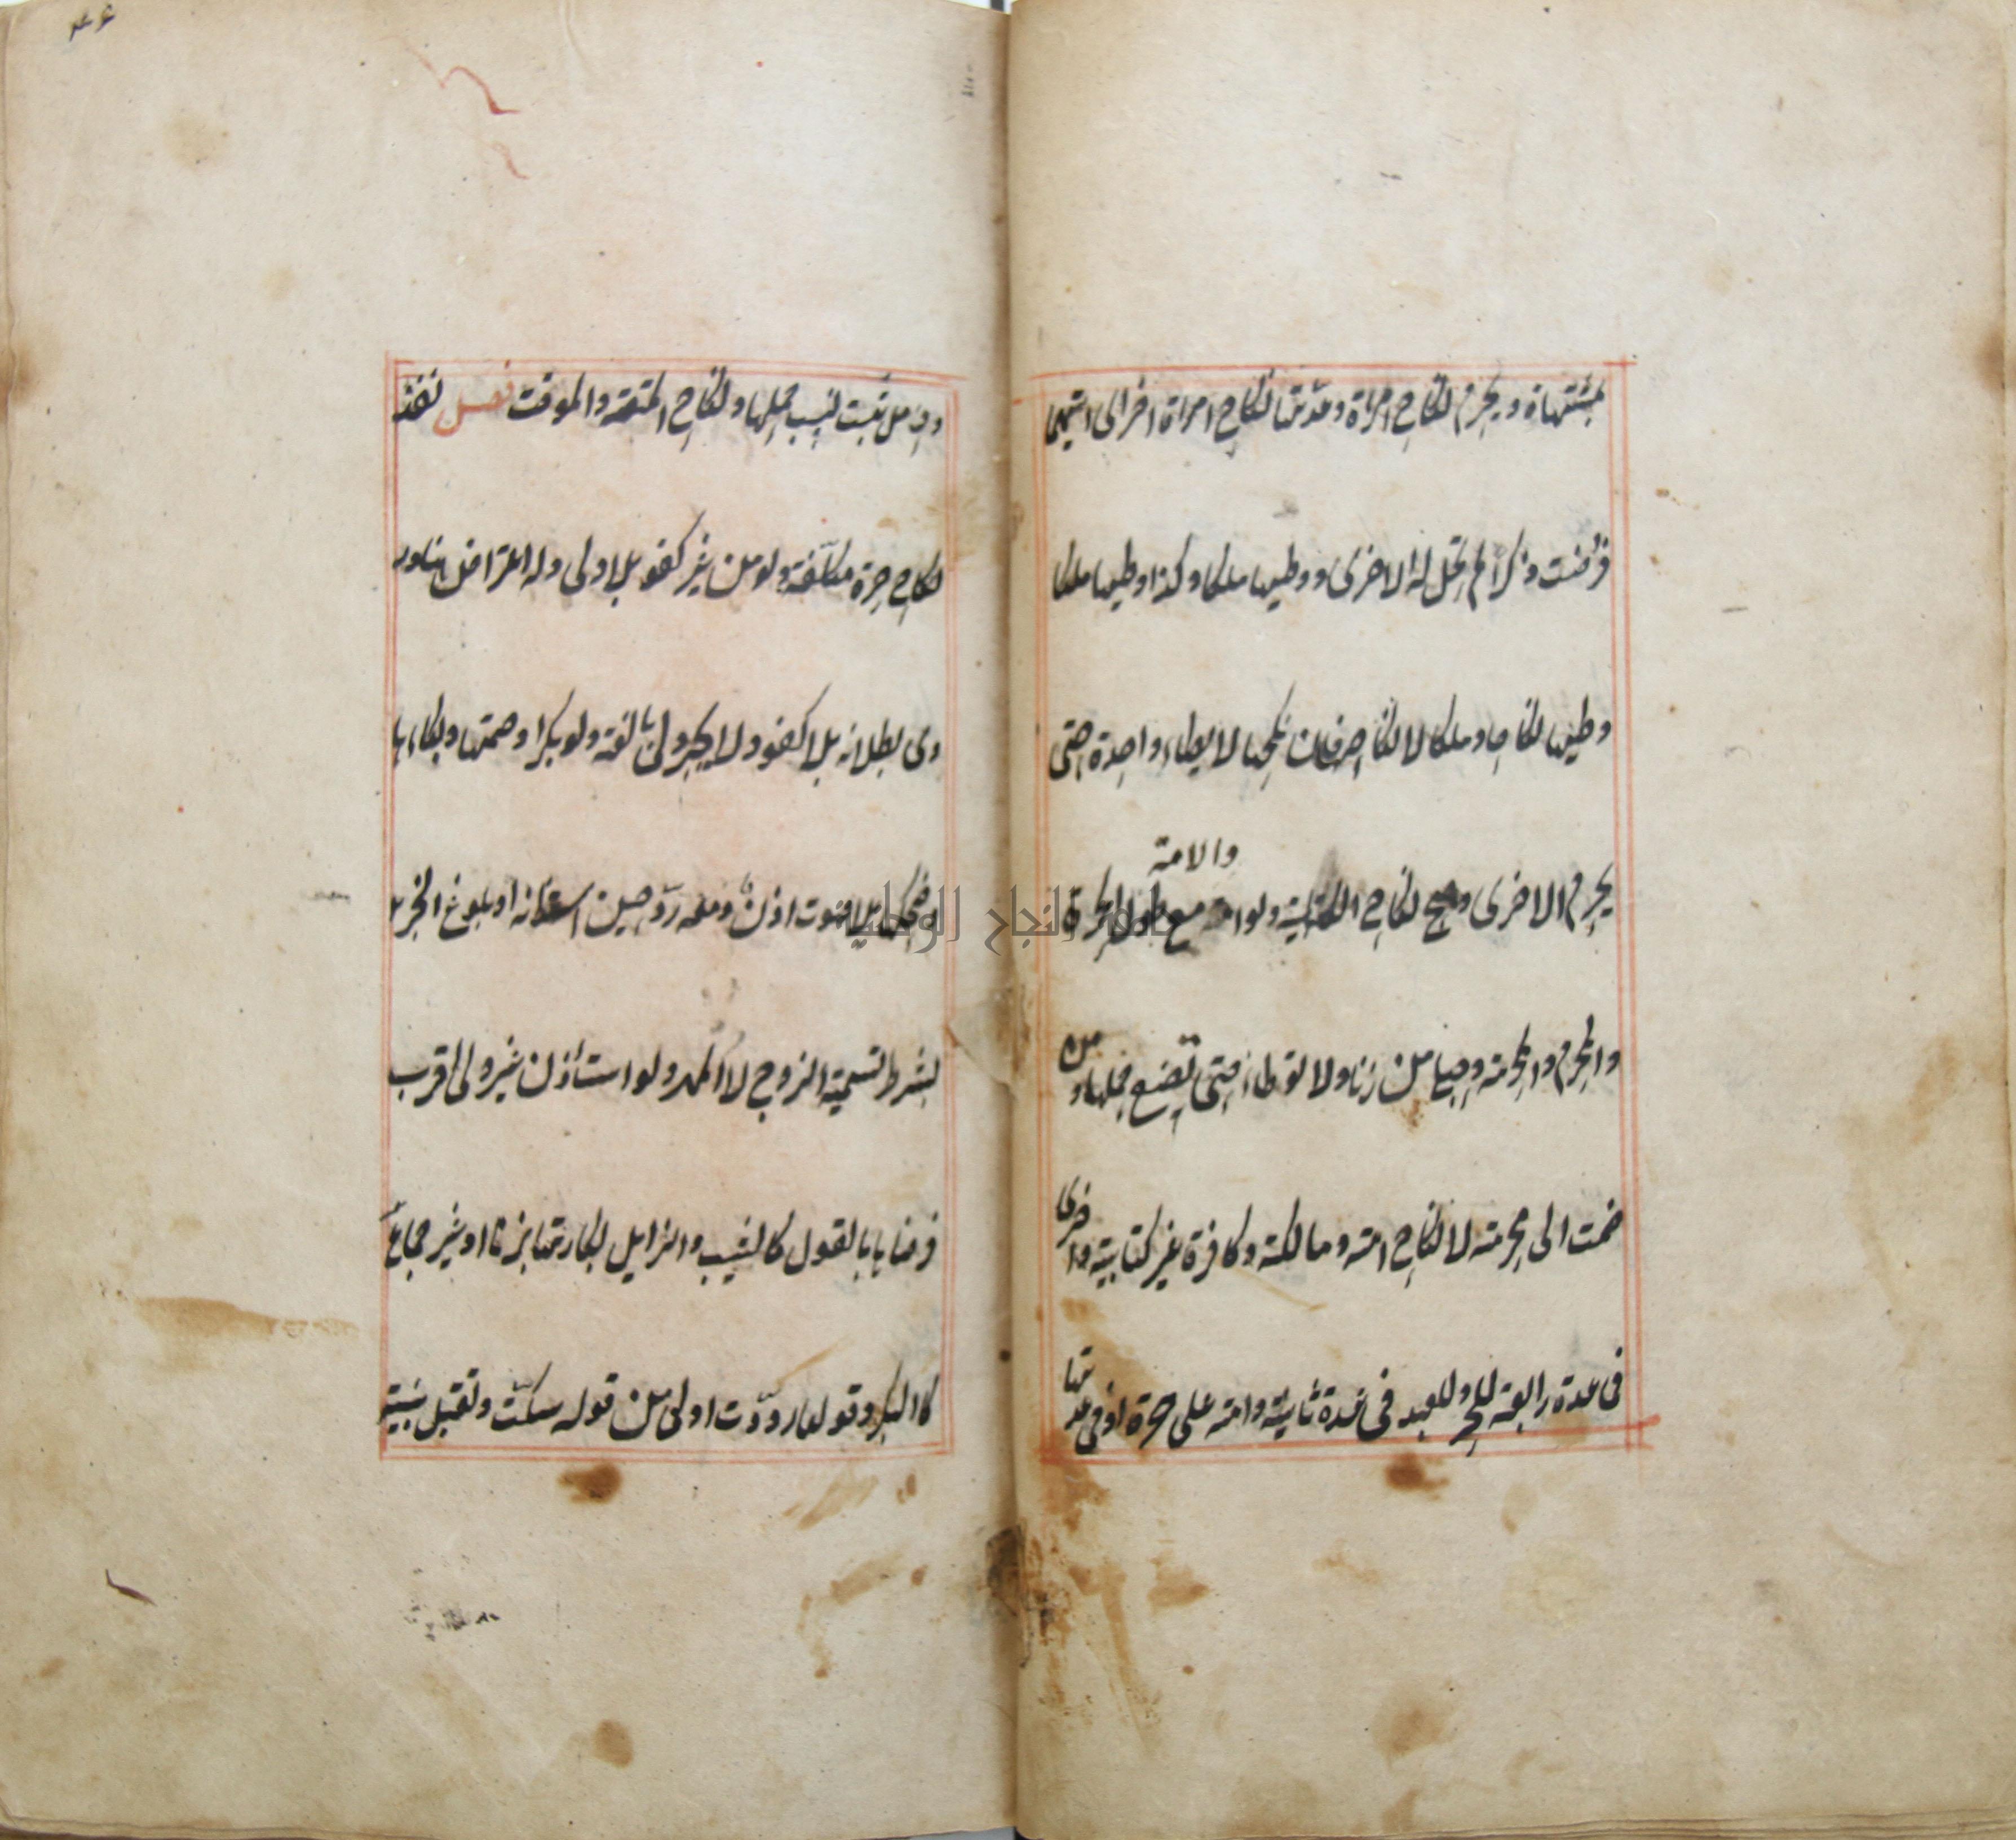 بمشتهاة ويحرم نكاح امراة وعدتها نكاح امراة اخرى ايتهما
فرضت ذكرا لم تحل له الاخرى ووطيها ملكا وكذا وطيها ملكا
وطيها نكاحا وملكا لا نكاحا فان نكحها لا يطاء واحدة حتى
والامة
يحرم الاخرى وصح نكاح الكتابية ولو امة مع طول الحرة
والمحرم والمحرمة وحبلى من زنا ولا توطاء حتى تضع حملها ومن
ضمت الى محرمة لا نكاح امته ومالكته وكافرة غير كتابية واخرى
فى عدة رابعة للحر وللعبد فى عدة ثانية وامة على حرة او فى عدتها
وحامل ثبت نسب حملها ونكاح المتعة والموقت فصل نفذ
نكاح حرة مكلفة ولو من غير كفو بلا ولى وله الاعتراض هنا
وروى بطلانه بلا كفو ولا يجبر ولى بالغة ولو بكرا وصمتها وبكاءها
وضحكها بلا صوت اذن ومعه رد حين استئذانه او بلوغ الخبر
بشرط تسمية الزوج لا المهر ولو استأذن غير ولى اقرب
فرضاها بالقول كالثيب والزايل بكارتها بزنا او غير جماع
كالبكر وقولها رددت اولى من قوله سكت وتقبل بينته
دار النجاح الوطنية